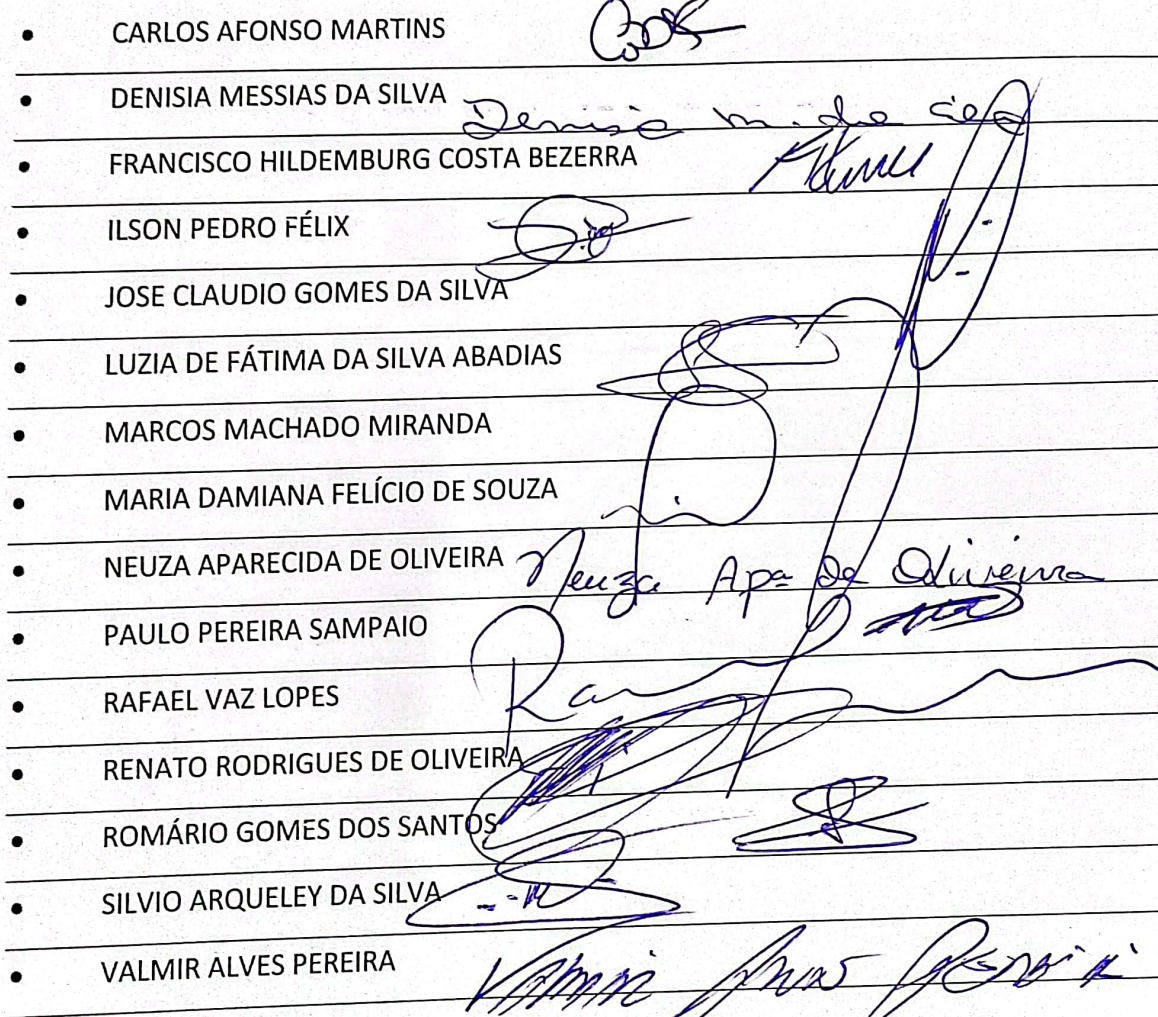 • CARLOS AFONSO MARTINS
• DENISIA MESSIAS DA SILVA
Denisia m. da
• FRANCISCO HILDEMBURG COSTA BEZERRA
• ILSON PEDRO FÉLIX
• JOSE CLAUDIO GOMES DA SILVA
• LUZIA DE FÁTIMA DA SILVA ABADIAS
• MARCOS MACHADO MIRANDA
• MARIA DAMIANA FELÍCIO DE SOUZA
• NEUZA APARECIDA DE OLIVEIRA Neuza Apª de Oliveira
• PAULO PEREIRA SAMPAIO
• RAFAEL VAZ LOPES
• RENATO RODRIGUES DE OLIVEIRA
• ROMÁRIO GOMES DOS SANTOS
• SILVIO ARQUELEY DA SILVA
• VALMIR ALVES PEREIRA Valmir Alves Pereira